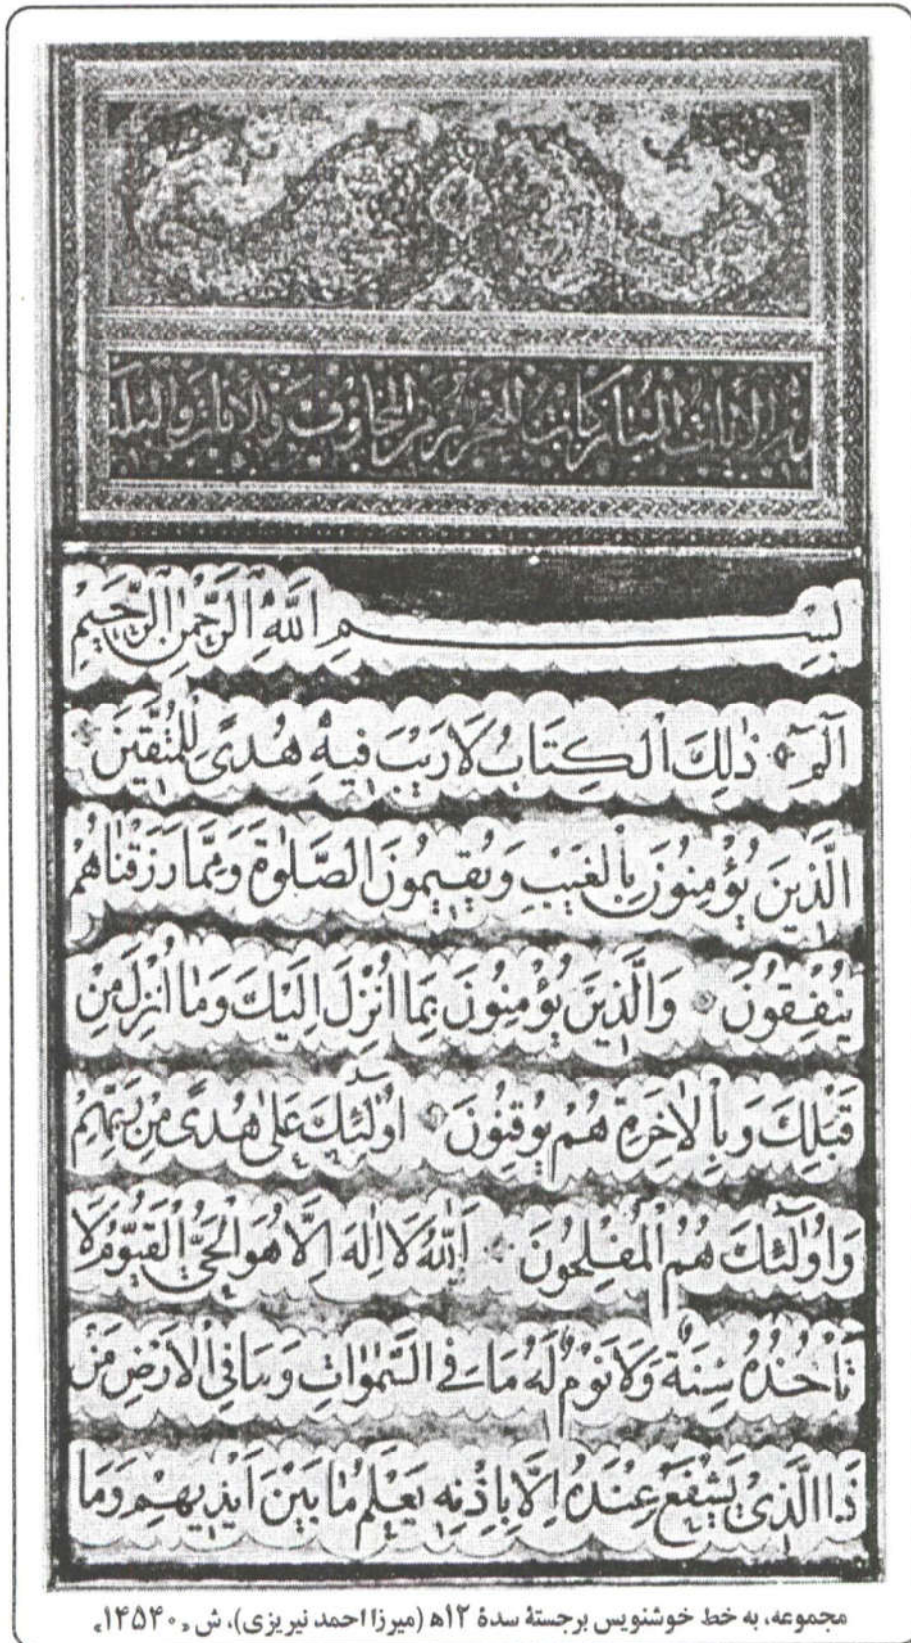 هذه الآيات البينات كانت للتحرز من المخاوف والآفات والبليات
بِسْمِ اللهِ الرَّحْمٰنِ الرَّحِيمِ
الٓمٓ ذٰلِكَ الْكِتَابُ لَا رَيْبَ فِيهِ هُدًى لِلْمُتَّقِينَ
الَّذِينَ يُؤْمِنُونَ بِالْغَيْبِ وَيُقِيمُونَ الصَّلٰوةَ وَمِمَّا رَزَقْنَاهُمْ
يُنْفِقُونَ وَالَّذِينَ يُؤْمِنُونَ بِمَا اُنْزِلَ اِلَيْكَ وَمَا اُنْزِلَ مِنْ
قَبْلِكَ وَبِالْاٰخِرَةِ هُمْ يُوقِنُونَ اُولٰٓئِكَ عَلٰى هُدًى مِنْ رَبِّهِمْ
وَاُولٰٓئِكَ هُمُ الْمُفْلِحُونَ اَللهُ لَا اِلٰهَ اِلَّا هُوَ الْحَيُّ الْقَيُّومُ لَا
تَأْخُذُهُ سِنَةٌ وَلَا نَوْمٌ لَهُ مَا فِي السَّمٰوَاتِ وَمَا فِي الْاَرْضِ مَنْ
ذَا الَّذِي يَشْفَعُ عِنْدَهُ اِلَّا بِاِذْنِهِ يَعْلَمُ مَا بَيْنَ اَيْدِيهِمْ وَمَا
مجموعه، به خط خوشنویس برجستهٔ سدهٔ ۱۲ه‍ (میرزا احمد نیریزی)، ش «۱۴۵۴۰»